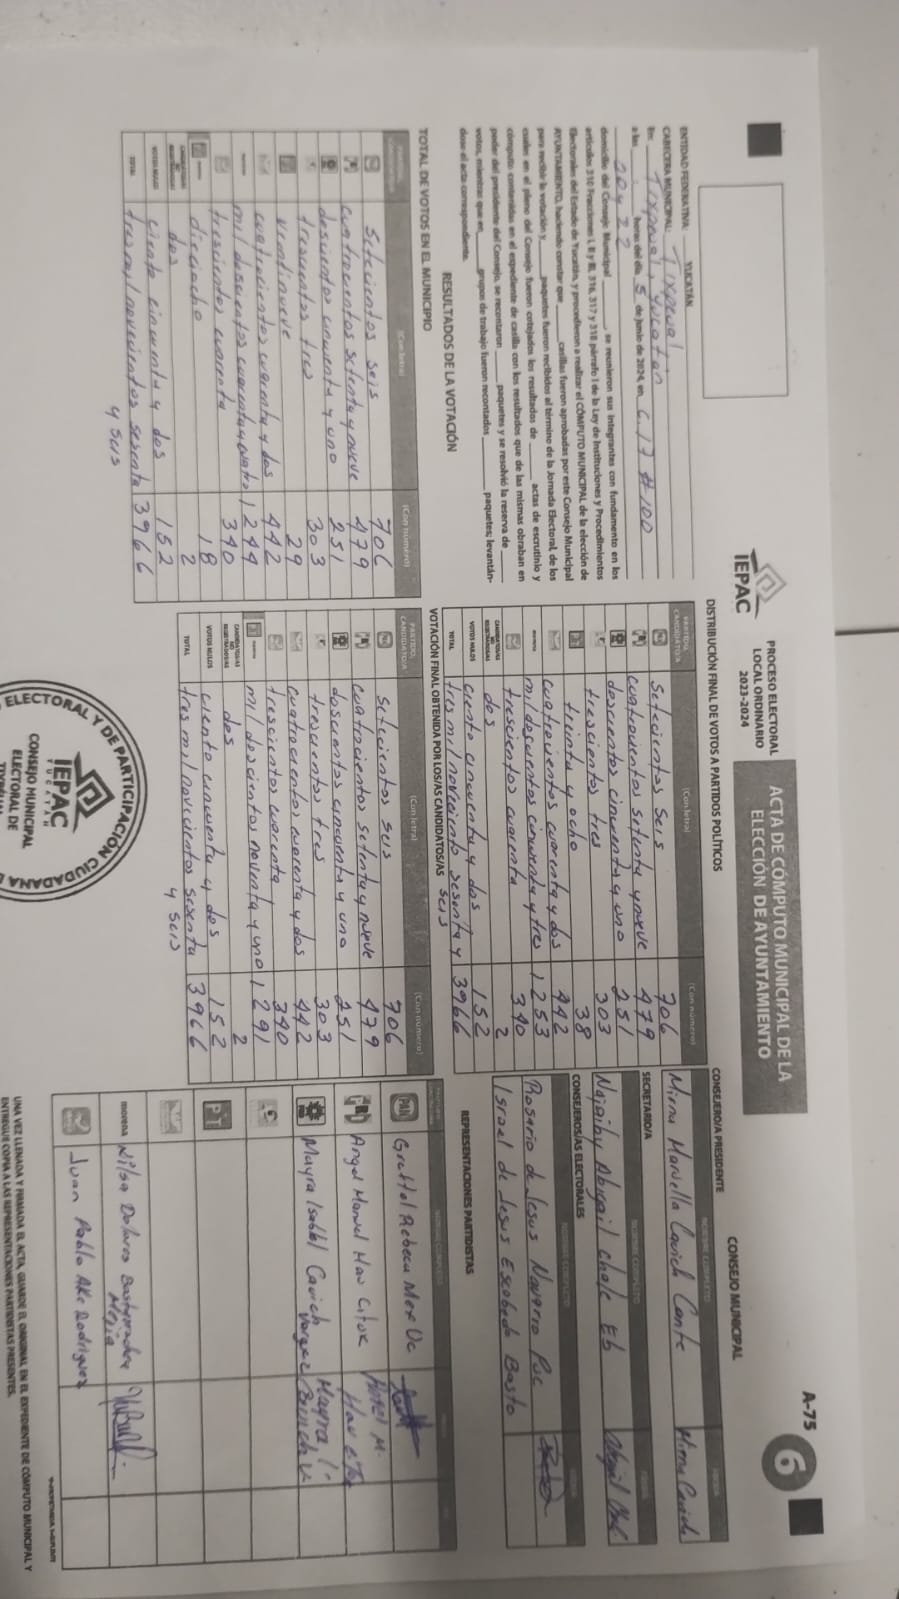 A-75
6
IEPAC
PROCESO ELECTORAL
LOCAL ORDINARIO
2023-2024
ACTA DE CÓMPUTO MUNICIPAL DE LA
ELECCIÓN DE AYUNTAMIENTO
ENTIDAD FEDERATIVA: YUCATÁN
CABECERA MUNICIPAL: Tixpeual
En: Tixpeual, Yucatan
a las horas del día 5 de junio de 2024, en C. 17 #100
domicilio del Consejo Municipal, se reunieron sus integrantes con fundamento en los
artículos 310 Fracciones I, II y III, 316, 317 y 318 párrafo I de la Ley de Instituciones y Procedimientos
Electorales del Estado de Yucatán, y procedieron a realizar el CÓMPUTO MUNICIPAL de la elección de
AYUNTAMIENTO, haciendo constar que casillas fueron aprobadas por este Consejo Municipal
para recibir la votación y paquetes fueron recibidos al término de la Jornada Electoral, de los
cuales en el pleno del Consejo fueron cotejados los resultados de actas de escrutinio y
cómputo contenidas en el expediente de casilla con los resultados que de las mismas obraban en
poder del presidente del Consejo, se recontaron paquetes y se resolvió la reserva de
votos, mientras que en grupos de trabajo fueron recontados paquetes; levantán-
dose el acta correspondiente.
RESULTADOS DE LA VOTACIÓN
TOTAL DE VOTOS EN EL MUNICIPIO
(Con letra) (Con número)
setecientos seis 706
cuatrocientos setenta y nueve 479
doscientos cincuenta y uno 251
trescientos tres 303
veintinueve 29
cuatrocientos cuarenta y dos 442
mil doscientos cuarenta y cuatro 1244
trescientos cuarenta 340
dieciocho 18
dos 2
VOTOS NULOS ciento cincuenta y dos 152
TOTAL tres mil novecientos sesenta y seis 3966
DISTRIBUCIÓN FINAL DE VOTOS A PARTIDOS POLÍTICOS
PARTIDO, CANDIDATO/A (Con letra) (Con número)
setecientos seis 706
cuatrocientos setenta y nueve 479
doscientos cincuenta y uno 251
trescientos tres 303
treinta y ocho 38
cuatrocientos cuarenta y dos 442
mil doscientos cincuenta y tres 1253
trescientos cuarenta 340
CANDIDATOS/AS NO REGISTRADOS/AS dos 2
VOTOS NULOS ciento cincuenta y dos 152
TOTAL tres mil novecientos sesenta y seis 3966
VOTACIÓN FINAL OBTENIDA POR LOS/AS CANDIDATOS/AS
PARTIDO, CANDIDATO/A (Con letra) (Con número)
setecientos seis 706
cuatrocientos setenta y nueve 479
doscientos cincuenta y uno 251
trescientos tres 303
cuatrocientos cuarenta y dos 442
trescientos cuarenta 340
mil doscientos noventa y uno 1291
CANDIDATOS/AS NO REGISTRADOS/AS dos 2
VOTOS NULOS ciento cincuenta y dos 152
TOTAL tres mil novecientos sesenta y seis 3966
ELECTORAL Y DE PARTICIPACIÓN CIUDADANA
IEPAC
YUCATÁN
CONSEJO MUNICIPAL
ELECTORAL DE
CONSEJO MUNICIPAL
CONSEJERO/A PRESIDENTE
NOMBRE COMPLETO
Mirna Marvella Cauich Canche
SECRETARIO/A
NOMBRE COMPLETO
Najaiby Abigail Chale Eb
CONSEJEROS/AS ELECTORALES
NOMBRE COMPLETO
Rosario de Jesus Navarro Puc
Israel de Jesus Escobedo Basto
REPRESENTACIONES PARTIDISTAS
PAN Grettel Rebeca Mex Uc
PRI Angel Manuel Hau Cituk
PRD Mayra Isabel Cauich Vargas
PT
morena Nilsa Dolores Bustamante Mejia
Juan Pablo Ake Rodriguez
UNA VEZ LLENADA Y FIRMADA EL ACTA, GUARDE EL ORIGINAL EN EL EXPEDIENTE DE CÓMPUTO MUNICIPAL Y
ENTREGUE COPIA A LAS REPRESENTACIONES PARTIDISTAS PRESENTES.